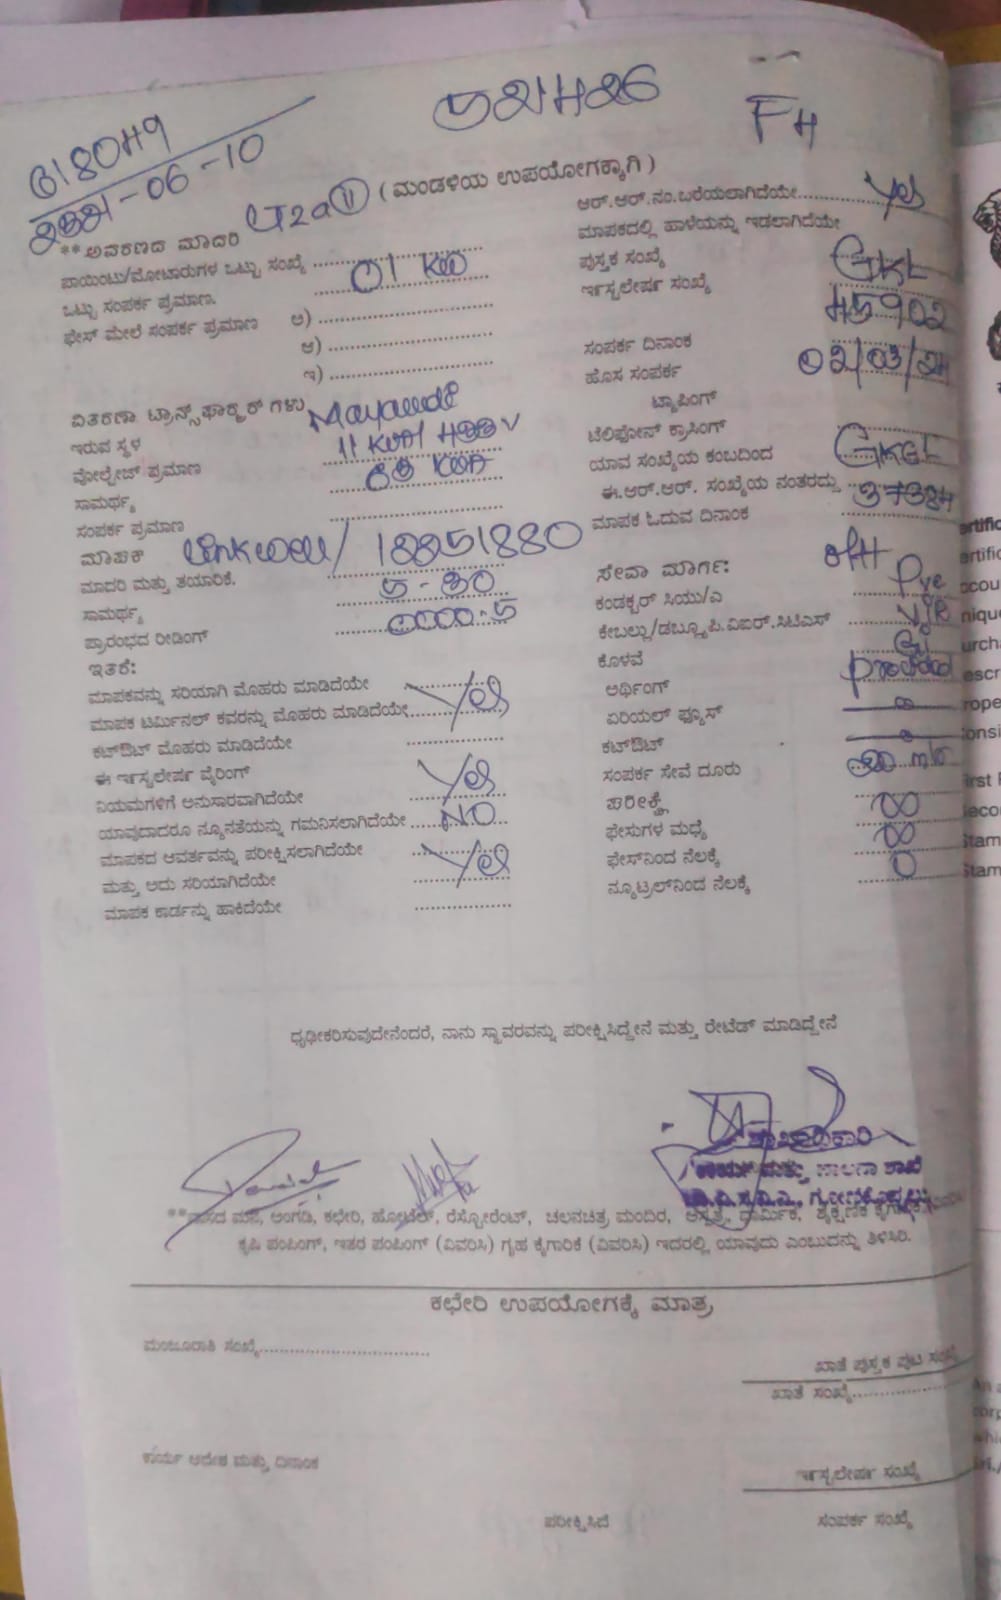 521426
FH
618049
2221-06-10
LT2a(ii) (ಮಂಡಳಿಯ ಉಪಯೋಗಕ್ಕಾಗಿ)
**ಆವರಣದ ಮಾದರಿ
ಪಾಯಿಂಟು/ಮೋಟಾರುಗಳ ಒಟ್ಟು ಸಂಖ್ಯೆ
ಒಟ್ಟು ಸಂಪರ್ಕ ಪ್ರಮಾಣ. 01 KW
ಫೇಸ್ ಮೇಲೆ ಸಂಪರ್ಕ ಪ್ರಮಾಣ ಅ)
ಆ)
ಇ)
ವಿತರಣಾ ಟ್ರಾನ್ಸ್‌ಫಾರ್ಮ್ರ್ ಗಳು
ಇರುವ ಸ್ಥಳ
ವೋಲ್ಟೇಜ್ ಪ್ರಮಾಣ
ಸಾಮರ್ಥ್ಯ
ಸಂಪರ್ಕ ಪ್ರಮಾಣ
ಮಾಪಕ Linkwell/ 18851880
ಮಾದರಿ ಮತ್ತು ತಯಾರಿಕೆ.
ಸಾಮರ್ಥ್ಯ 5-30
ಪ್ರಾರಂಭದ ರೀಡಿಂಗ್ 0000.5
ಇತರೆ:
ಮಾಪಕವನ್ನು ಸರಿಯಾಗಿ ಮೊಹರು ಮಾಡಿದೆಯೇ
ಮಾಪಕ ಟರ್ಮಿನಲ್ ಕವರನ್ನು ಮೊಹರು ಮಾಡಿದೆಯೇ Yes
ಕಟ್‌ಔಟ್ ಮೊಹರು ಮಾಡಿದೆಯೇ
ಈ ಇನ್‌ಸ್ಟಲೇಷನ್ ವೈರಿಂಗ್
ನಿಯಮಗಳಿಗೆ ಅನುಸಾರವಾಗಿದೆಯೇ Yes
ಯಾವುದಾದರೂ ನ್ಯೂನತೆಯನ್ನು ಗಮನಿಸಲಾಗಿದೆಯೇ NO
ಮಾಪಕದ ಆವರ್ತವನ್ನು ಪರೀಕ್ಷಿಸಲಾಗಿದೆಯೇ
ಮತ್ತು ಅದು ಸರಿಯಾಗಿದೆಯೇ Yes
ಮಾಪಕ ಕಾರ್ಡನ್ನು ಹಾಕಿದೆಯೇ
ಆರ್.ಆರ್.ನಂ.ಬರೆಯಲಾಗಿದೆಯೇ Yes
ಮಾಪಕದಲ್ಲಿ ಹಾಳೆಯನ್ನು ಇಡಲಾಗಿದೆಯೇ
ಪುಸ್ತಕ ಸಂಖ್ಯೆ GKL
ಇನ್‌ಸ್ಟಲೇಷನ್ ಸಂಖ್ಯೆ 45902
ಸಂಪರ್ಕ ದಿನಾಂಕ 02/03/24
ಹೊಸ ಸಂಪರ್ಕ
ಟ್ಯಾಪಿಂಗ್
ಟೆಲಿಫೋನ್ ಕ್ರಾಸಿಂಗ್
ಯಾವ ಸಂಖ್ಯೆಯ ಕಂಬದಿಂದ GKGL
ಈ.ಆರ್.ಆರ್. ಸಂಖ್ಯೆಯ ನಂತರದ್ದು 37384
ಮಾಪಕ ಓದುವ ದಿನಾಂಕ
ಸೇವಾ ಮಾರ್ಗ: OH
ಕಂಡಕ್ಟರ್ ಸಿಯು/ಎ
ಕೇಬಲ್ಲು/ಡಬ್ಲ್ಯೂ.ಪಿ.ವಿಐಆರ್.ಸಿಟಿಎಸ್
ಕೊಳವೆ GI
ಅರ್ಥಿಂಗ್ provided
ಏರಿಯಲ್ ಫ್ಯೂಸ್
ಕಟ್‌ಔಟ್
ಸಂಪರ್ಕ ಸೇವೆ ದೂರು
ಪರೀಕ್ಷೆ
ಫೇಸುಗಳ ಮಧ್ಯೆ
ಫೇಸ್‌ನಿಂದ ನೆಲಕ್ಕೆ
ನ್ಯೂಟ್ರಲ್‌ನಿಂದ ನೆಲಕ್ಕೆ
ಧೃಢೀಕರಿಸುವುದೇನೆಂದರೆ, ನಾನು ಸ್ಥಾವರವನ್ನು ಪರೀಕ್ಷಿಸಿದ್ದೇನೆ ಮತ್ತು ರೇಟೆಡ್ ಮಾಡಿದ್ದೇನೆ
ಮನೆ, ಅಂಗಡಿ, ಕಛೇರಿ, ಹೋಟೆಲ್, ರೆಸ್ಟೋರೆಂಟ್, ಚಲನಚಿತ್ರ ಮಂದಿರ, ಆಸ್ಪತ್ರೆ, ಧಾರ್ಮಿಕ, ಶೈಕ್ಷಣಿಕ
ಕೃಷಿ ಪಂಪಿಂಗ್, ಇತರ ಪಂಪಿಂಗ್ (ವಿವರಿಸಿ) ಗೃಹ ಕೈಗಾರಿಕೆ (ವಿವರಿಸಿ) ಇದರಲ್ಲಿ ಯಾವುದು ಎಂಬುದನ್ನು ತಿಳಿಸಿರಿ.
ಕಛೇರಿ ಉಪಯೋಗಕ್ಕೆ ಮಾತ್ರ
ಮಂಜೂರಾತಿ ಸಂಖ್ಯೆ
ಖಾತೆ ಪುಸ್ತಕ ಪುಟ ಸಂಖ್ಯೆ
ಖಾತೆ ಸಂಖ್ಯೆ
ಕಾರ್ಯ ಆದೇಶ ಮತ್ತು ದಿನಾಂಕ
ಇನ್‌ಸ್ಟಲೇಷನ್ ಸಂಖ್ಯೆ
ಪರೀಕ್ಷಿಸಿದೆ
ಸಂಪರ್ಕ ಸಂಖ್ಯೆ